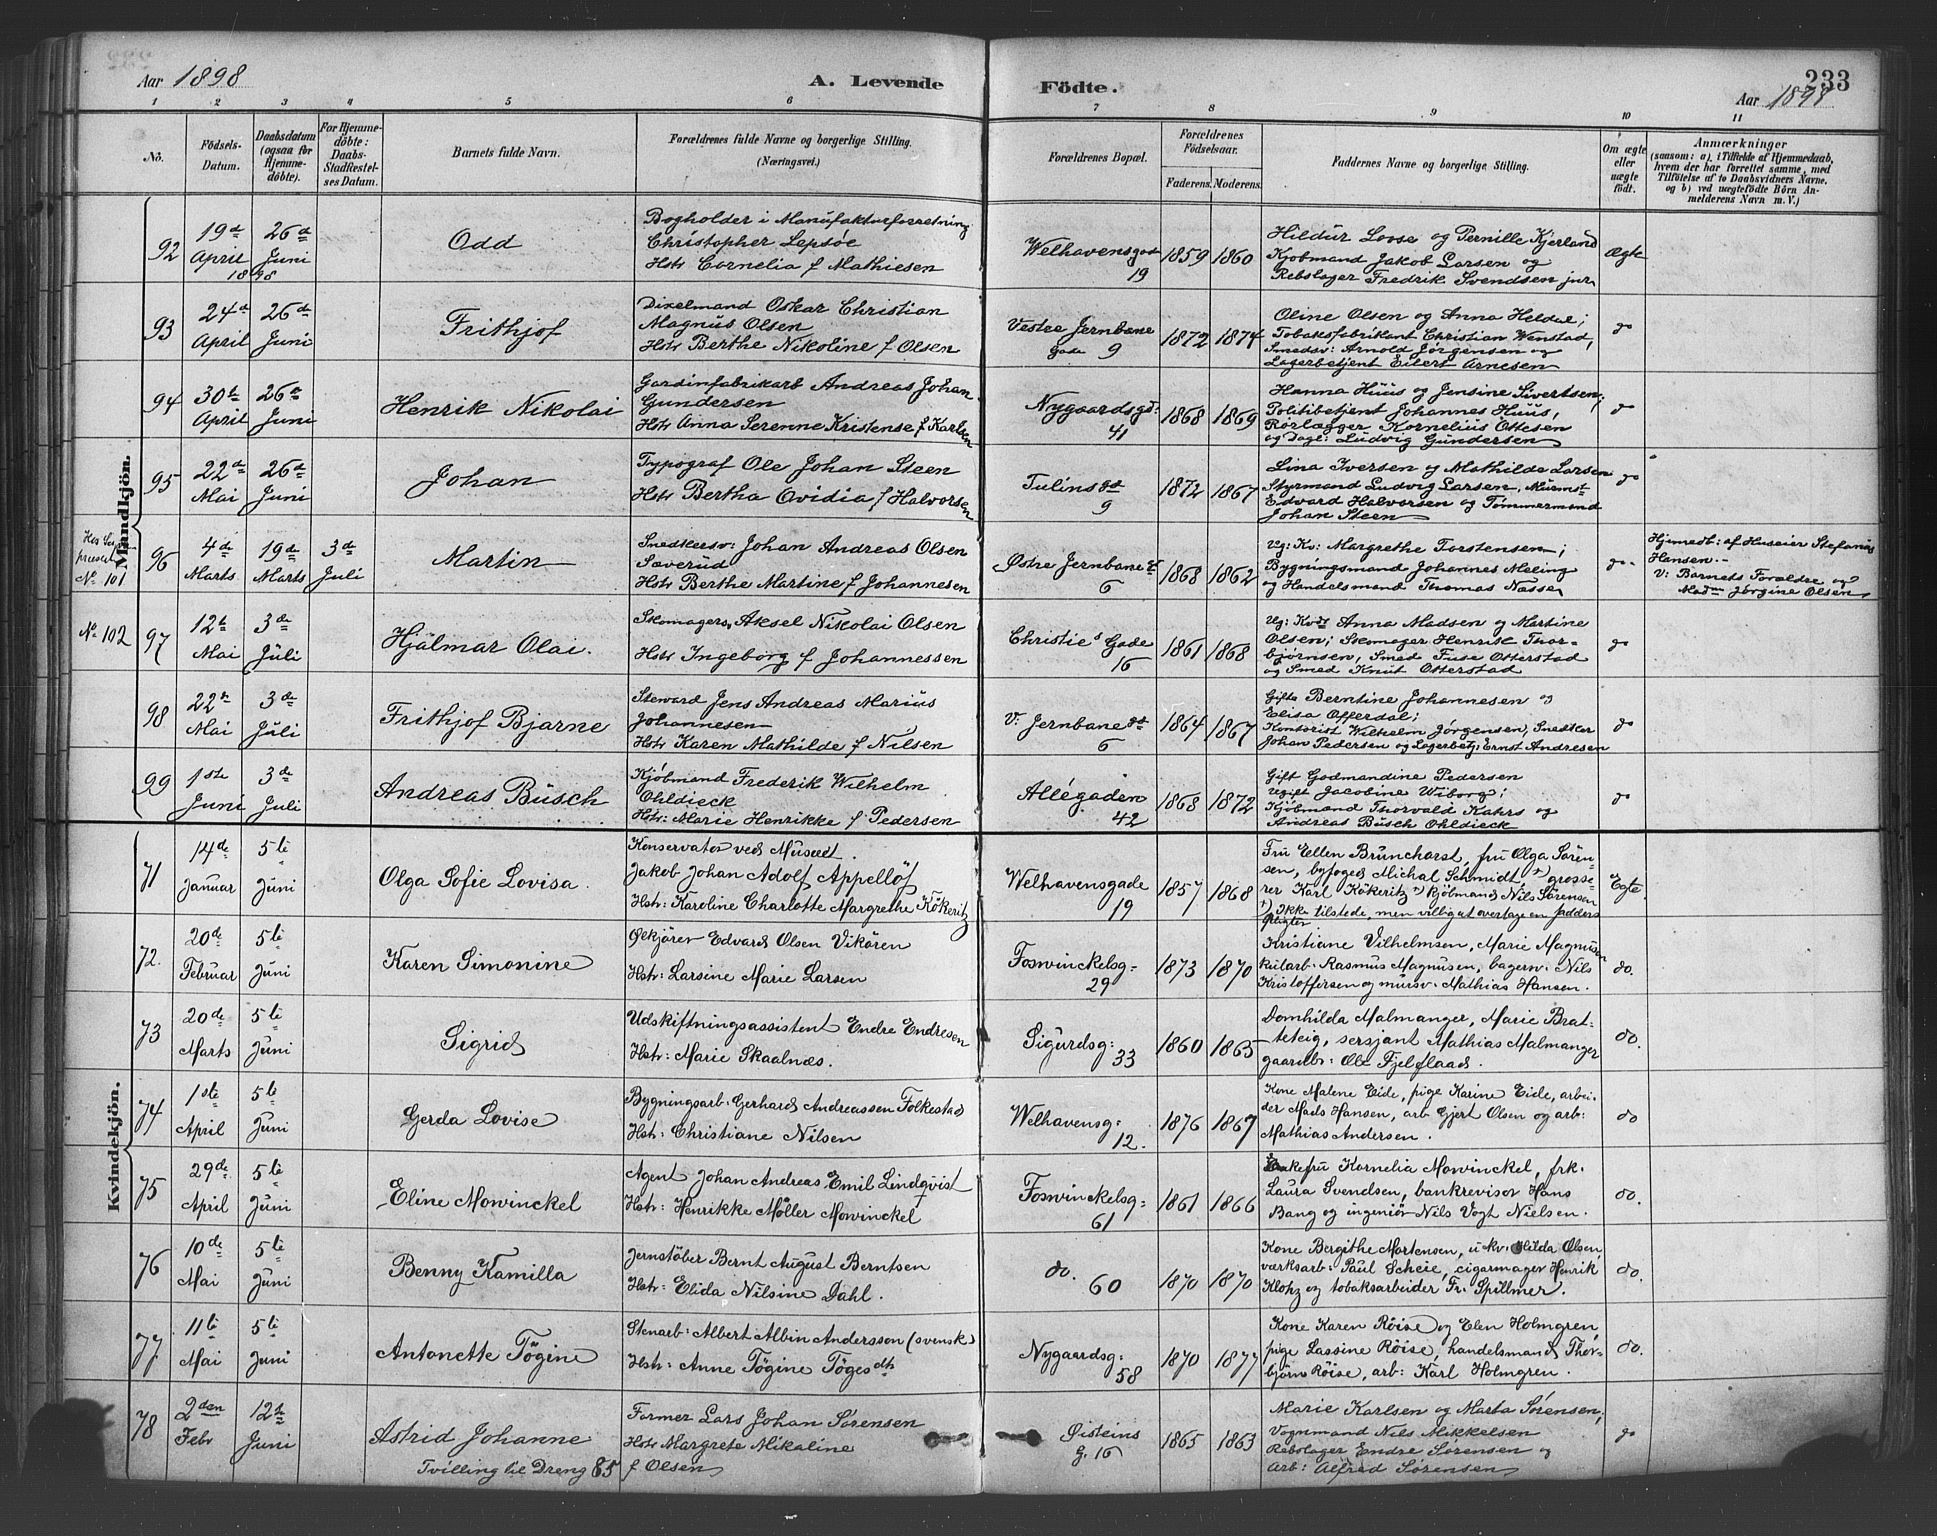 Aar 1898 A. Levende Födte. Aar 1898 233
1 2 3 4 5 6 7 8 9 10 11
No. Födsels-Datum. Daabsdatum (ogsaa for Hjemmedöbte). For Hjemmedöbte: Daabs-Stadfæstelses Datum. Barnets fulde Navn. Forældrenes fulde Navne og borgerlige Stilling. (Næringsvei.) Forældrenes Bopæl. Forældrenes Födselsaar. Faderens. Moderens. Faddernes Navne og borgerlige Stilling. Om ægte eller uægte födt. Anmærkninger (saasom: a) i Tilfælde af Hjemmedaab, hvem der har forrettet samme, med Tilföielse af to Daabsvidners Navne, og b) ved uægtefödte Börn Anmelderens Navn m. V.)
Mandkjön.
92 19de April 1898 26de Juni Odd
Bogholder i Manufakturforretning
Christopher Lepsöe
Hstr Cornelia f Mathiesen
Welhavensgad 19 1859 1860
Hildur Loose og Pernille Kjerland
Kjöbmand Jakob Larsen og
Rebslager Fredrik Svendsen jur
Ægte
93 24de April 26de Juni Frithjof
Dixelmand Oskar Christian
Magnus Olsen
Hstr Berthe Nikoline f Olsen
Vestre Jernbane Gade 9 1872 1874
Oline Olsen og Anna Heldal;
Tobaksfabrikant Christian Wenstad,
Smedsv: Arnold Jørgensen og
Lagerbetjent Eilert Arnesen
do
94 30te April 26de Juni Henrik Nikolai
Gardinfabrikarb Andreas Johan
Gundersen
Hstr Anna Serenne Kristense f Karlsen
Nygaardsgd: 41 1868 1869
Hanna Huus og Jensine Sivertsen;
Politibetjent Johannes Huus,
Rørlægger Kornelius Ottesen
og Dagl: Ludvig Gundersen
do
95 22de Mai 26de Juni Johan
Typograf Ole Johan Steen
Hstr Bertha Ovidia f Halvorsen
Tulinsgd 9 1872 1867
Lina Iversen og Mathilde Larsen
Styrmand Ludvig Larsen, Murmst
Edvard Halvorsen og Tömmermand
Johan Steen
do
No 101
96 4de Marts 19de Marts 3de Juli Martin
Snedkersv: Johan Andreas Olsen
Sæverud
Hstr Berthe Martine f Johannesen
Østre Jernbane 6 1868 1862
Ug: Kv: Margrethe Torstensen;
Bygningsmand Johannes Meling
og Handelsmand Thomas Nasse
do
Hjemedt: af Huseier Stefanus
Hansen.
V: Barnets Forældre og
Madm Jørgine Olsen
No 102
97 12te Mai 3de Juli Hjalmar Olai.
Skomagers. Aksel Nikolai Olsen
Hstr Ingeborg f Johannessen
Christies Gade 16 1861 1868
Ug: Kvdr Anna Madsen og Martine
Olsen; Skomager Henrik Thor-
bjørnsen, Smed Fuse Otterstad
og Smed Knut Otterstad
do
98 22de Mai 3de Juli Frithjof Bjarne
Steward Jens Andreas Marius
Johannesen
Hstr Karen Mathilde f Nilsen
V: Jernbanegd 6 1864 1867
Gifte Berntine Johannesen og
Elisa Offerdal;
Kontorist Wilhelm Jørgensen, Snedker
Johan Pedersen og Lagerbetj: Ernst Andresen
do
99 1ste Juni 3de Juli Andreas Busch
Kjöbmand Frederik Wilhelm
Ohldieck
Hstr: Marie Henrikke f Pedersen
Allégaden 42 1868 1872
Gift Godmandine Pedersen
Ugift Jacobine Wiborg;
Kjöbmand Thorvald Kahrs og
Andreas Busch Ohldieck
do
Kvindekjön.
71 14de Januar 5te Juni Olga Sofie Lovisa.
Konservator ved Museet.
Jakob Johan Adolf Appellöf
Hstr: Karoline Charlotte Margrethe Kökeritz
Welhavensgade 19 1857 1868
Fru Ellen Brunchorst, fru Olga Sören-
sen, byfoged Michal Schmidt, +) grosse-
rer Karl Kökeritz +) kjöbmand Nils Sörensen
+) Ikke tilstede, men villig at overtage en fadders pligter
Egte.
72. 20de Februar 5te Juni Karen Simonine
Ølkjörer Edvard Olsen Vikören
Hstr: Larsine Marie Larsen
Foswinckelsg- 29 1873 1870
Kristiane Vilhelmsen, Marie Magnusen
kularb. Rasmus Magnusen, bagersv. Nils
Kristoffersen og mursv. Mathias Hansen.
do.
73 20de Marts 5te Juni Sigrid
Udskiftningsassistent Endre Endresen
Hstr: Marie Skaalnæs.
Sigurdsg: 33 1860 1865
Domhilda Malmanger, Marie Brat-
teteig, sersjant Mathias Malmanger
gaardbr: Ole Fjelflaad.
do.
74 1ste April 5te Juni Gerda Lovise
Bygningsarb: Gerhard Andreassen Folkestad
Hstr: Christiane Nilsen
Welhavensg: 12. 1876 1867
Kone Malene Eide, pige Karine Eide, arbei-
der Mads Hansen, arb Gjert Olsen og arb:
Mathias Andersen.
do
75 29de April 5te Juni Eline Mowinckel
Agent Johan Andreas Emil Lindqvist
Hstr: Henrikke Möller Mowinckel
Foswinckelsg: 61 1861 1866
Enkefru Kornelia Mowinckel, frk.
Laura Svendsen, bankrevisor Hans
Bang og ingeniör Nils Vogt Nielsen.
do.
76 10de Mai 5te Juni Benny Kamilla
Jernstöber Bernt August Berntsen
Hstr: Elida Nilsine Dahl.
do. 60 1870 1870
Kone Bergithe Mortensen, u kv. Hilda Olsen,
værksarb: Paul Scheie, cigarmager Henrik
Klohz og tobaksarbeider Fr. Spillmer.
do.
77 11te Mai 5te Juni Antonette Tögine
Stenarb: Albert Albin Andersson (svensk)
Hstr: Anne Tögine Tögesdtr
Nygaardsg: 58 1870 1877
Kone Karen Röise og Elen Holmgren,
pige Lassine Röise, handelsmand Thor-
björn Röise, arb: Karl Holmgren.
do.
78 2den Febr 12te Juni Astrid Johanne
Tvilling til Dreng 85
Farmer Lars Johan Sørensen
Hstr Margrete Mikaline
f Olsen
Øisteins G. 16 1865 1863
Marie Karlsen og Marta Sørensen,
Vognmand Nils Mikkelsen
Rebslager Endre Sørensen og
Arb: Alfred Sørensen
do